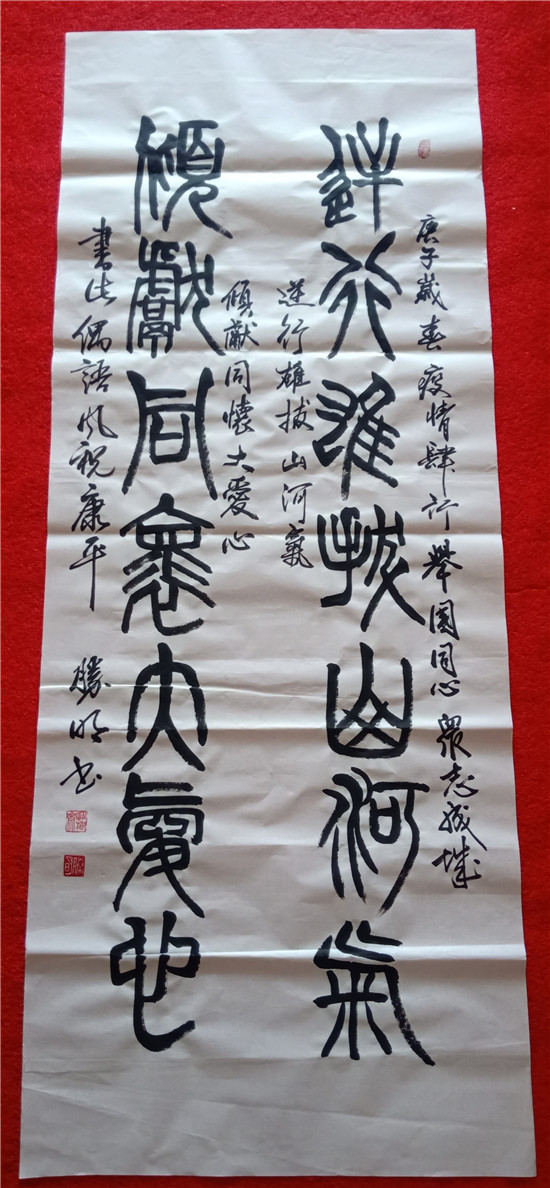 庚子歲春疫情肆行舉國同心眾志成城
逆行雄拔山河氣
逆行雄拔山河氣
傾獻同懷大愛心
傾獻同懷大愛心
書此偶語以祝康平
勝明书